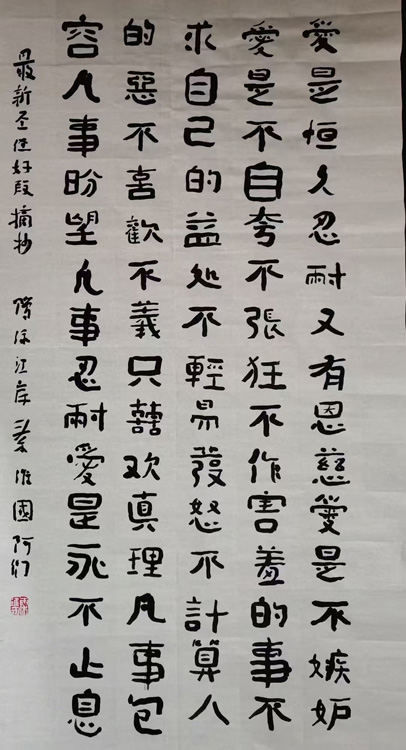 愛是恒久忍耐又有恩慈愛是不嫉妒
愛是不自夸不張狂不作害羞的事不
求自己的益処不輕易發怒不計算人
的惡不喜歡不義只囍欢真理凡事包
容凡事盼望凡事忍耐愛是永不止息
最新圣经好段摘抄 江岸 國阿们